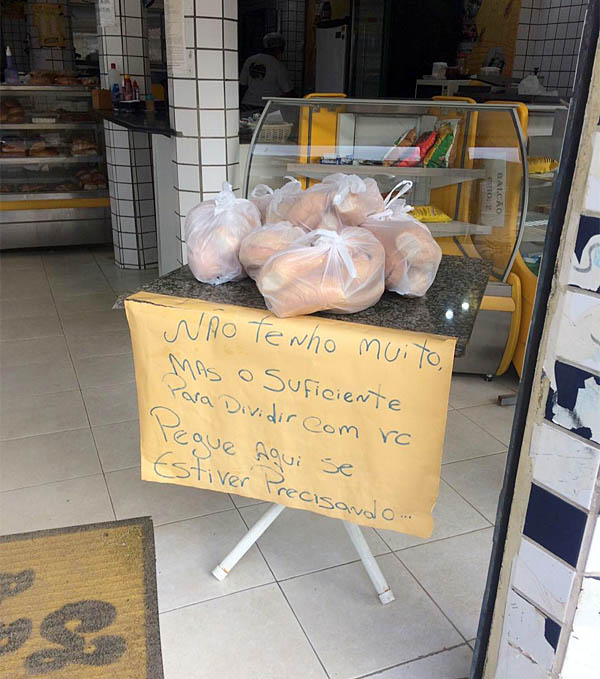 NÃO TENHO MUITO,
MAS O SUFICIENTE
PARA DIVIDIR COM VC
PEGUE AQUI SE
ESTIVER PRECISANDO...
BALCÃO